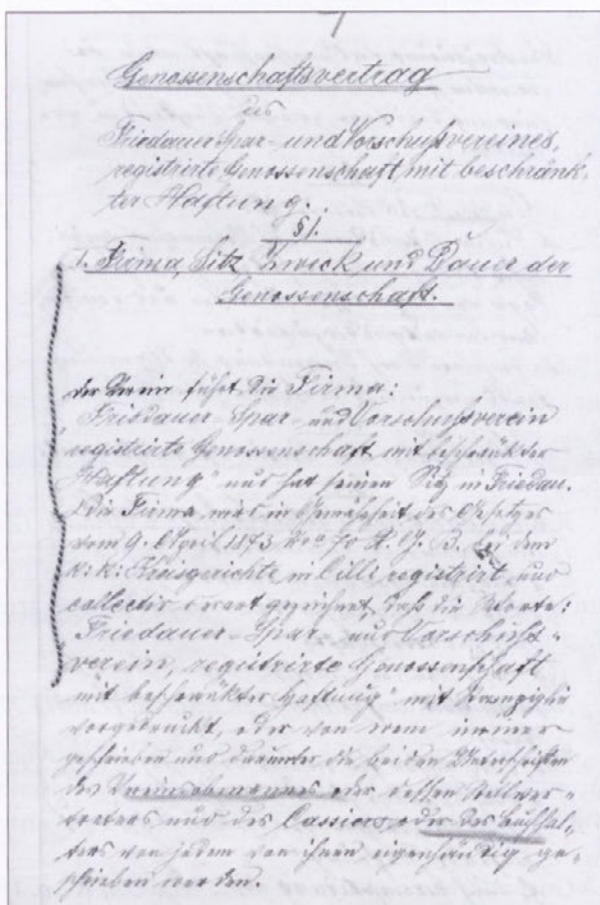 Genossenschaftsvertrag
des
Friedauer Spar- und Vorschußvereines,
registrirte Genossenschaft mit beschränk-
ter Haftung.
§ 1.
1. Firma, Sitz, Zweck und Dauer der
Genossenschaft.
Der Verein führt die Firma:
"Friedauer-Spar- und Vorschußverein
registrirte Genossenschaft mit beschränkter
Haftung" und hat seinen Sitz in Friedau.
Die Firma wird in Gemäßheit des Gesetzes
vom 9. April 1873 Nro 70 R. G. B. bei dem
k: k: Kreisgerichte in Cilli registrirt und
collectiv derart gezeichnet, daß die Worte:
"Friedauer-Spar- und Vorschuß-
verein, registrirte Genossenschaft
mit beschränkter Haftung" mit Stampiglie
vorgedruckt, oder von wem immer
geschrieben und darunter die beiden Unterschriften
des Vereinsobmannes oder dessen Stellver-
treters und des Cassiers oder des Buchhal-
ters von jedem von ihnen eigenhändig ge-
schrieben werden.